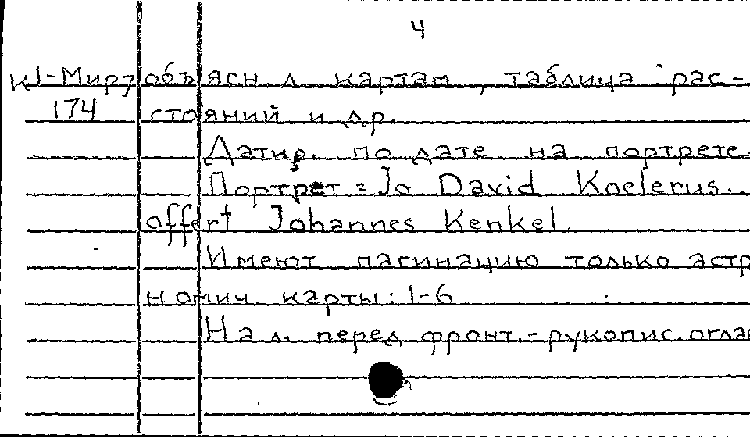 4
КJ-Мир7 объясн. л. картам, таблица рас-
174 стояний и др.
Датир. по дате на портрете.
Портрет: Jo David Koelerus.
offert Johannes Kenkel.
Имеют пагинацию только астр
номич. карты: 1-6
На л. перед фронт.-рукопис. огла